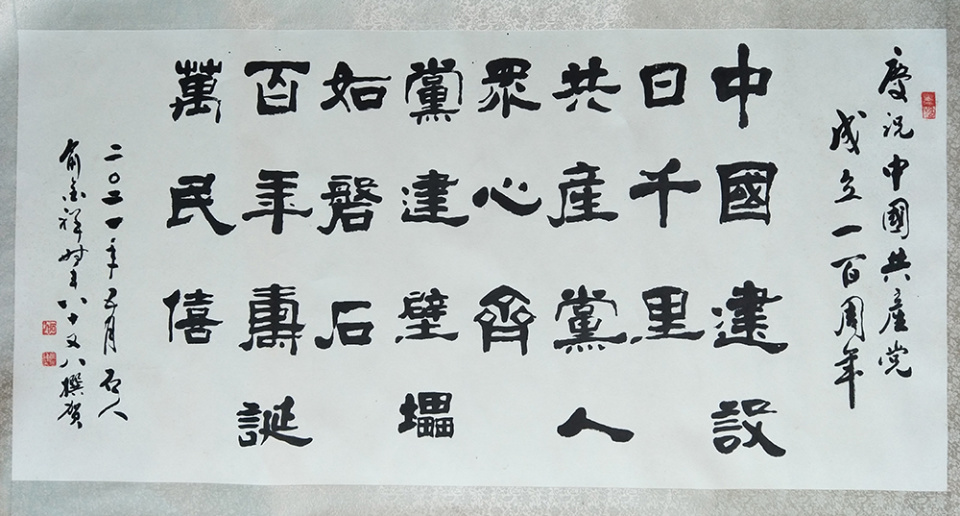 慶祝中國共產党
成立一百周年
中國建設
日千里
共產黨人
眾心齊
黨建壁壘
如磐石
百年壽誕
萬民僖
二〇二一年五月 石人
俞金祥时年八十又八撰贺